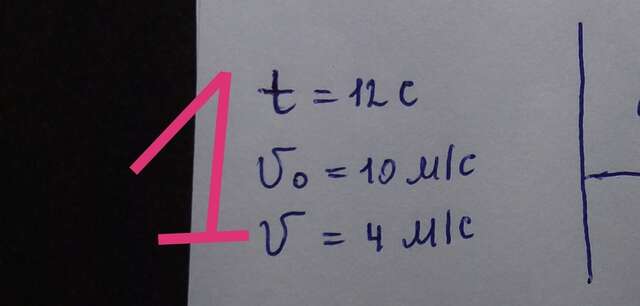 1
t = 12 с
v₀ = 10 м/с
v = 4 м/с